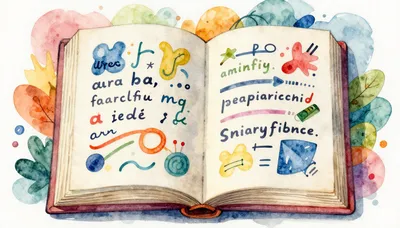 Wrex
aura ba,
faarclfiu mq
a iedé
arn
aminfiy.
peapiaricchid
Sniaryfibnce.
=